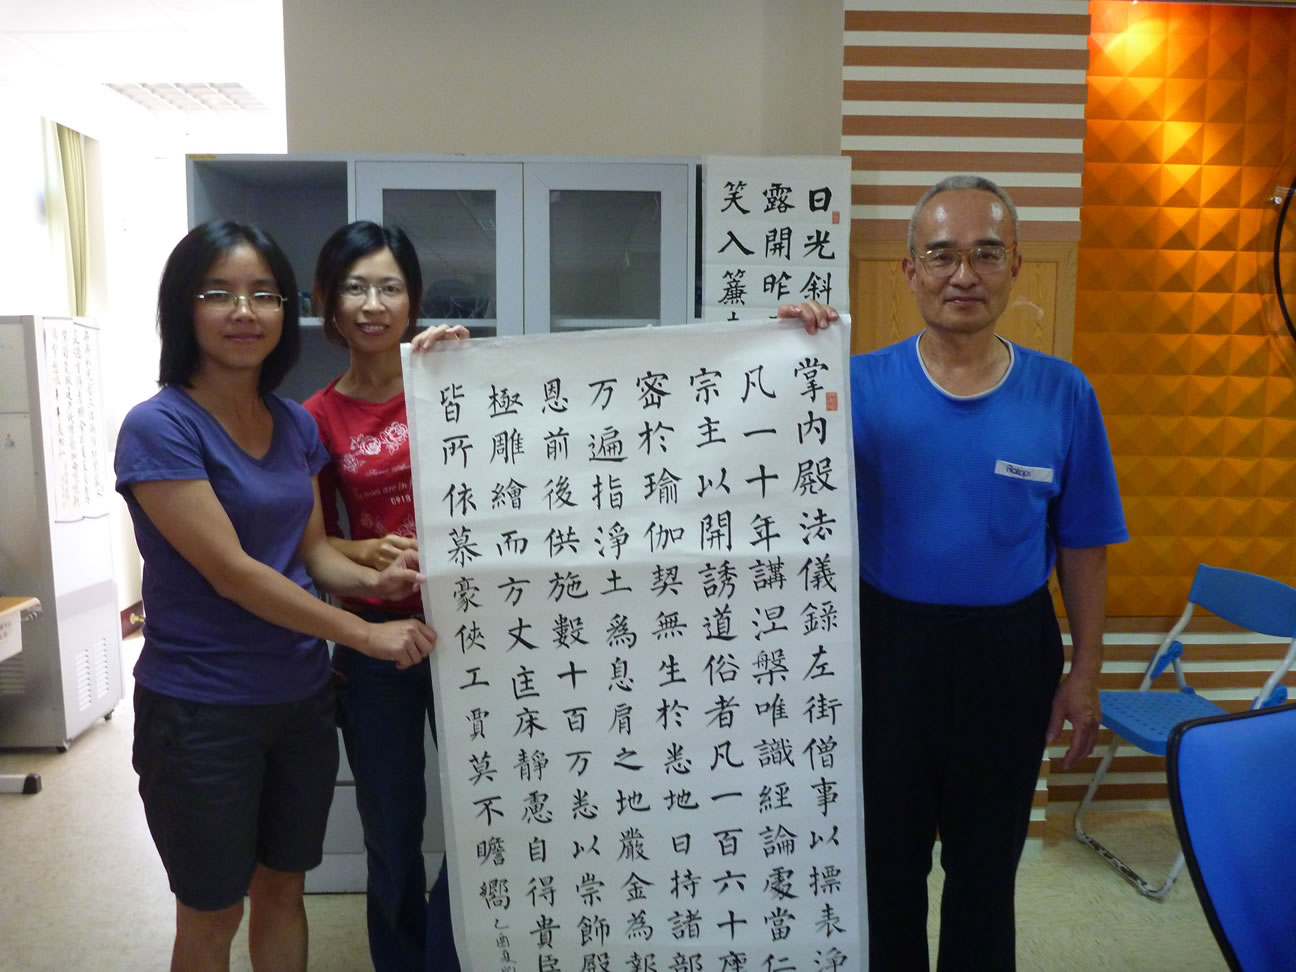 日光斜
露開昨
笑入簾
掌內殿法儀錄左街僧事以摽表淨
凡一十年講涅槃唯識經論處當仁
宗主以開誘道俗者凡一百六十座
密於瑜伽契無生於悉地日持諸部
万遍指淨土為息肩之地嚴金為報
恩前後供施數十百万悉以崇飾殿
極雕繪而方丈匡床靜慮自得貴臣
皆所依慕豪俠工賈莫不瞻嚮
乙酉夏